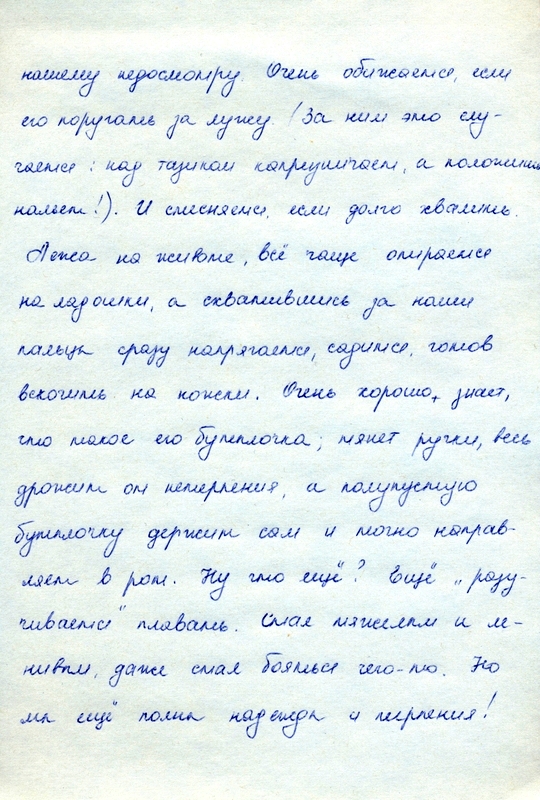 нашему недосмотру. Очень обижается, если
его поругать за лужу. (За ним это слу-
чается: над тазиком капризничает, а положишь
нальёт!). И стесняется, если долго хвалить.
Лёжа на животе, всё чаще опирается
на ладошки, а схватившись за наши
пальцы сразу напрягается, садится, готов
вскочить на ножки. Очень хорошо, знает,
что такое его бутылочка; тянет ручки, весь
дрожит от нетерпения, а полупустую
бутылочку держит сам и точно направ-
ляет в рот. Ну что ещё? Ещё „разу-
чивается" плавать. Стал тяжелым и ле-
нивым, даже стал бояться чего-то. Но
мы ещё полны надежды и терпения!